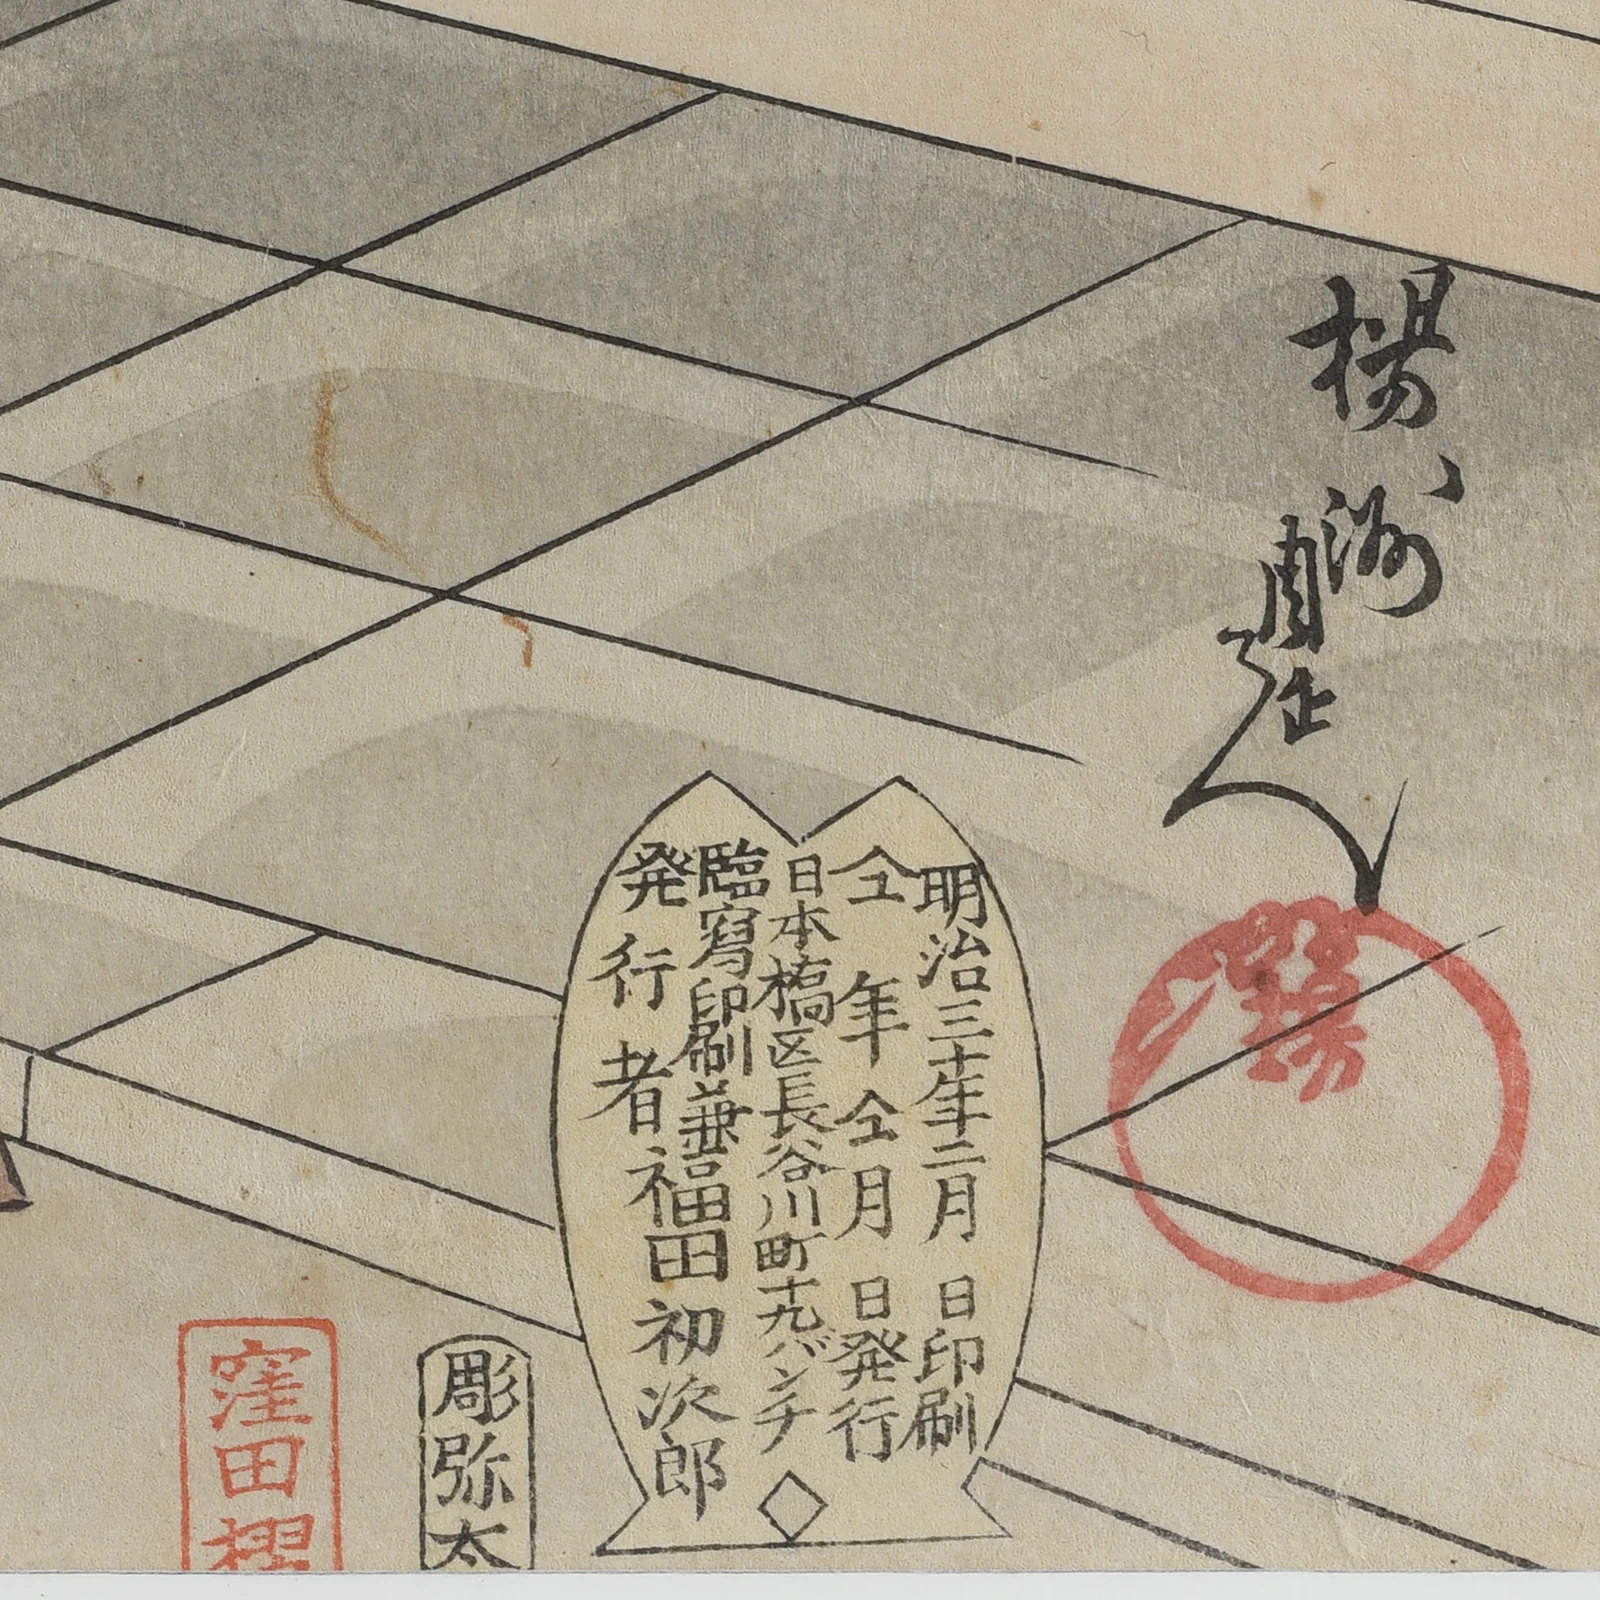 楊洲周延
明治三十年二月　日印刷
仝年仝月　日発行
日本橋区長谷川町十九バンチ
臨寫印刷兼
発行者福田初次郎
彫弥太
窪田櫻